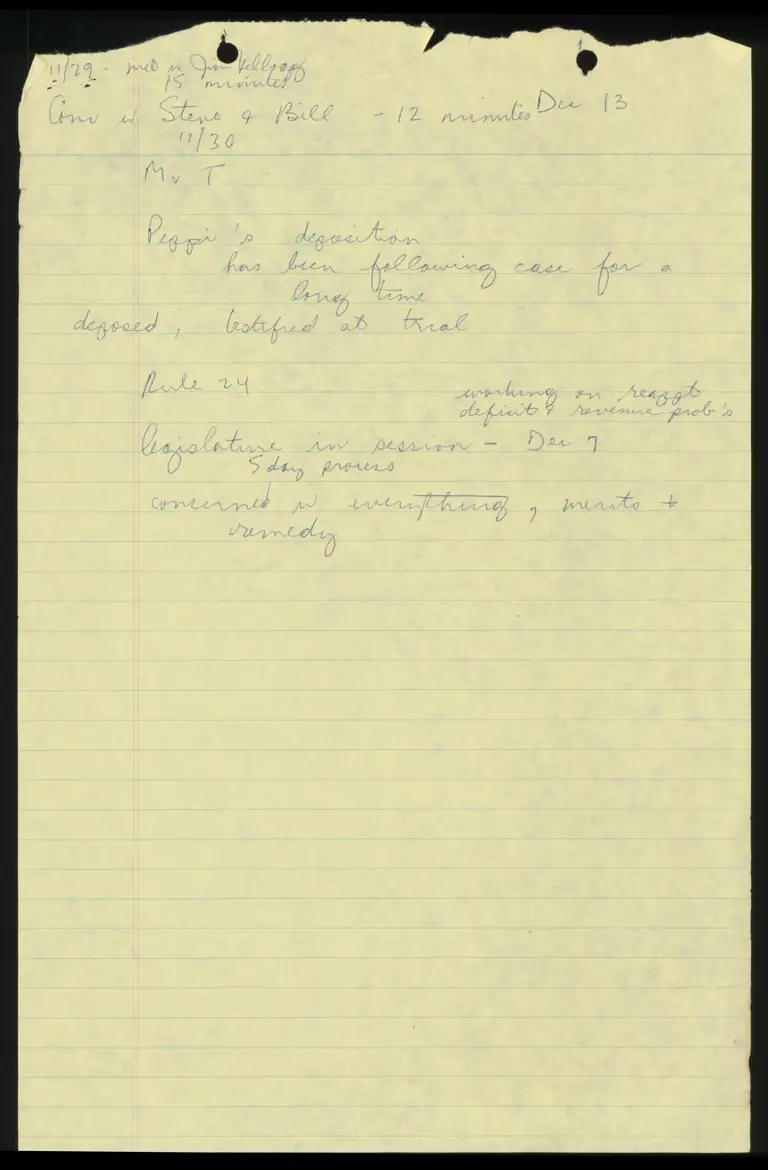 11/29 - met w Jim Kellogg
15 minutes
Conv w Steve & Bill - 12 minutes Dec 13
11/30
M v T
Peppi's deposition
has been following case for a
long time
deposed, testified at trial
Rule 24
working on reappt
deficit & revenue prob's
legislature in session - Dec 7
5 day process
concerned w everything, merits +
remedy